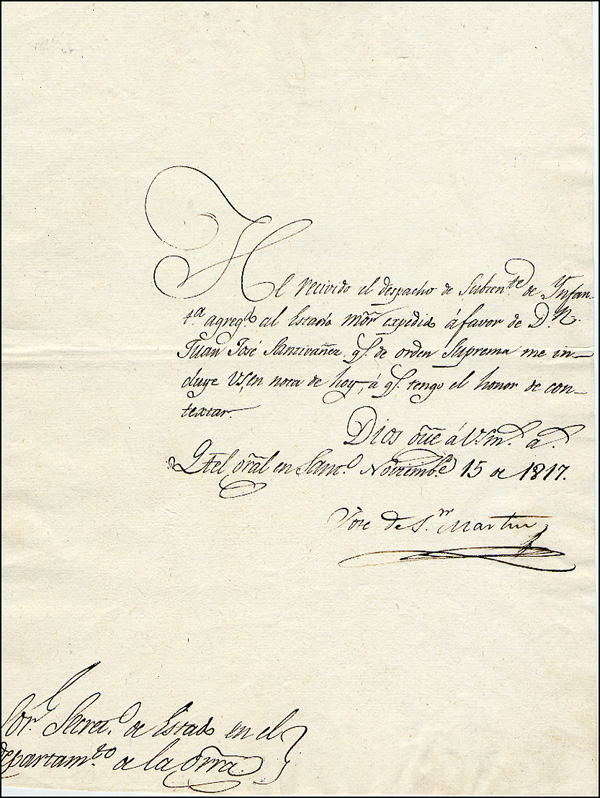 He recivido el despacho de Subten.te de Ynfan-
t.a agreg.o al Estado Mor. expedido á favor de D.n
Juan José Sanzivañez q.e de orden Suprema me in-
cluye VS, en nota de hoy, á q.e tengo el honor de con-
textar.
Dios gue á V.S. m.s a.s
Qtel gral en Sant.o Noviemb.e 15 de 1817.
Jose de S.n Martin
Sor. Secret.o de Estado en el
departam.to de la Grra.